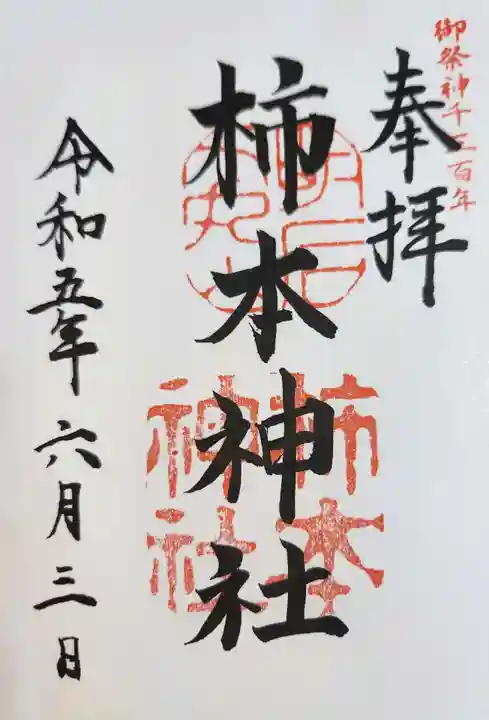 御祭神千三百年
奉拝
柿本神社
柿本
神社
令和五年六月三日